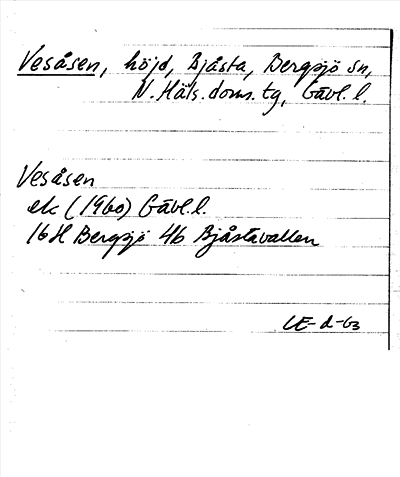 Vesåsen, höjd, Bjåsta, Bergsjö sn,
N. Häls. doms. tg, Gävl. l.
Vesåsen
ek (1960) Gävl. l.
16H Bergsjö 4b Bjåstavallen